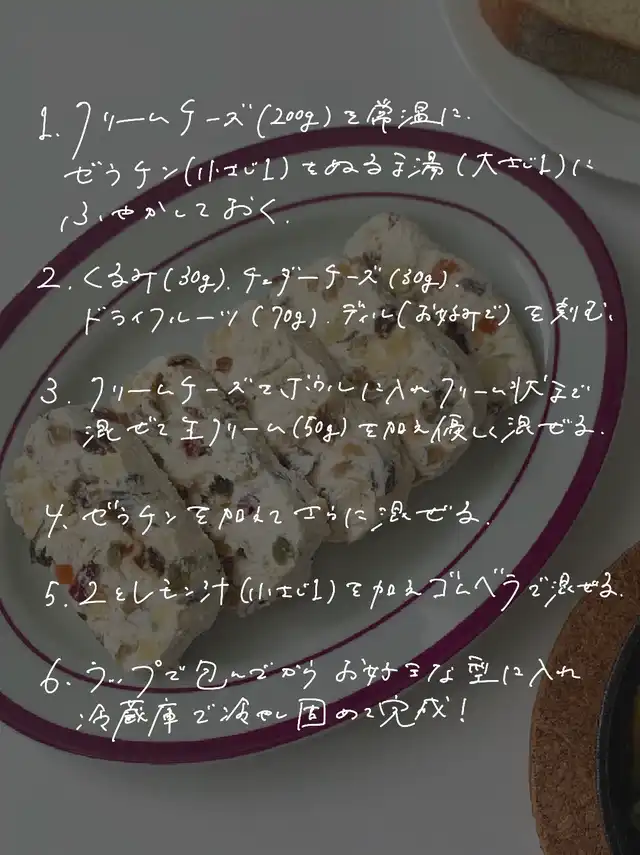 1. クリームチーズ(200g)を常温に.
ゼラチン(小さじ1)をぬるま湯(大さじ1)に
ふやかしておく.
2. くるみ(30g). チェダーチーズ(30g).
ドライフルーツ(70g). ディル(お好みで)を刻む.
3. クリームチーズをボウルに入れクリーム状まで
混ぜて生クリーム(50g)を加え優しく混ぜる.
4. ゼラチンを加えてさらに混ぜる.
5. 2とレモン汁(小さじ1)を加えゴムベラで混ぜる.
6. ラップで包んでからお好きな型に入れ
冷蔵庫で冷やし固めて完成!